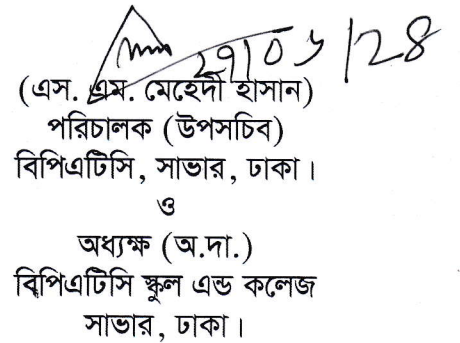 ২৭/০৬/২৪
(এস. এম. মেহেদী হাসান)
পরিচালক (উপসচিব)
বিপিএটিসি, সাভার, ঢাকা।
ও
অধ্যক্ষ (অ.দা.)
বিপিএটিসি স্কুল এন্ড কলেজ
সাভার, ঢাকা।